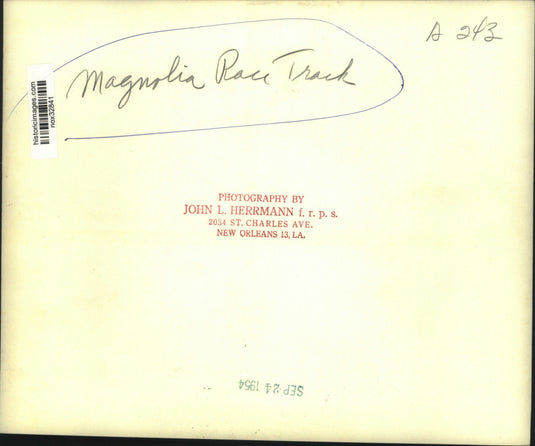 A 243
Magnolia Race Track
historicimages.com
nox32841
PHOTOGRAPHY BY
JOHN L. HERRMANN f. r. p. s.
2034 ST. CHARLES AVE.
NEW ORLEANS 13, LA.
SEP 24 1954